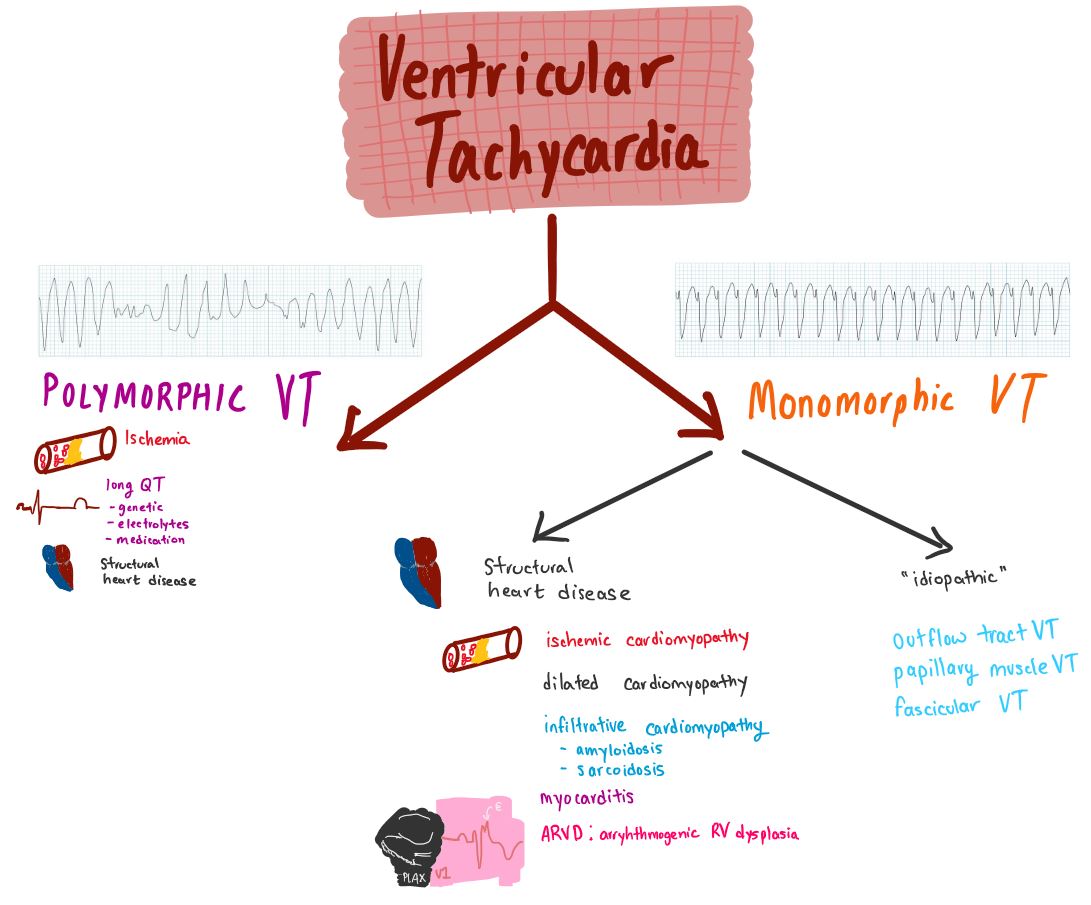 Ventricular
Tachycardia
POLYMORPHIC VT
Ischemia
long QT
- genetic
- electrolytes
- medication
Structural
heart disease
Monomorphic VT
Structural
heart disease
ischemic cardiomyopathy
dilated cardiomyopathy
infiltrative cardiomyopathy
- amyloidosis
- sarcoidosis
myocarditis
ARVD: arryhthmogenic RV dysplasia
ε
PLAX
V1
"idiopathic"
outflow tract VT
papillary muscle VT
fascicular VT